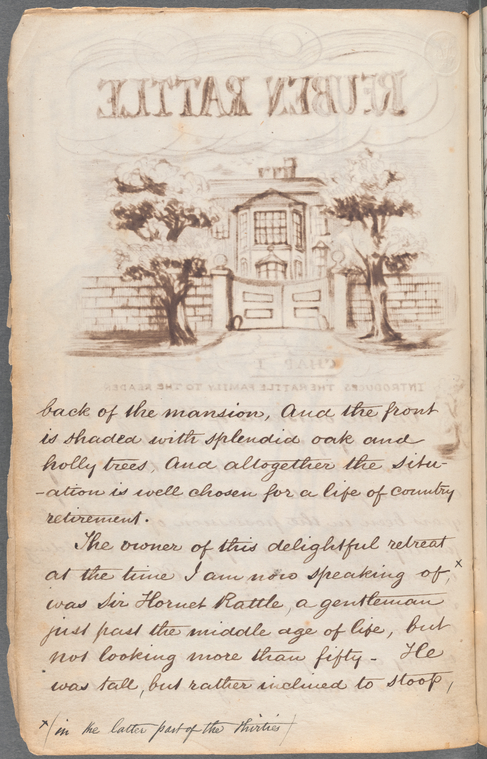 REUBEN RATTLE
CHAP I
INTRODUCES THE RATTLE FAMILY TO THE READER
back of the mansion, And the front
is shaded with splendid oak and
holly trees, And altogether the situ-
-ation is well chosen for a life of country
retirement.
The owner of this delightful retreat
at the time I am now speaking of, x
was Sir Hornet Rattle, a gentleman
just past the middle age of life, but
not looking more than fifty - He
was tall, but rather inclined to stoop,
x (in the latter part of the thirties)